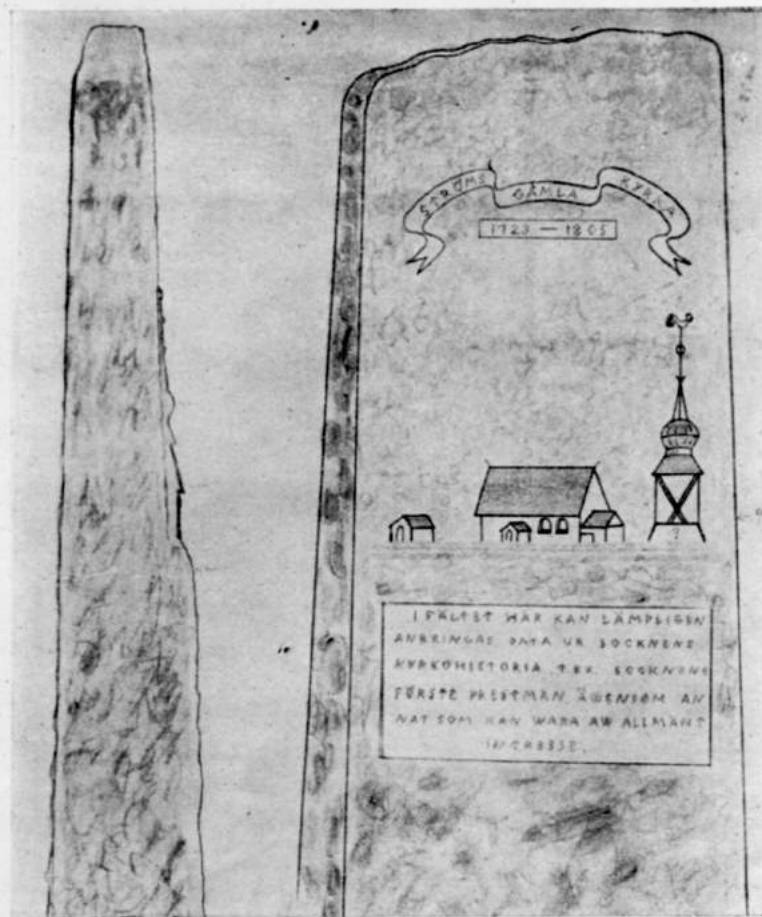 STRÖMS GAMLA KYRKA
1723 — 1805
I FÄLTET HÄR KAN LÄMPLIGEN
ANBRINGAS DATA UR SOCKNENS
KYRKOHISTORIA T.EX. SOCKNENS
FÖRSTE PRESTMAN ÄWENSOM AN
NAT SOM KAN WARA AW ALLMÄNT
INTRESSE.